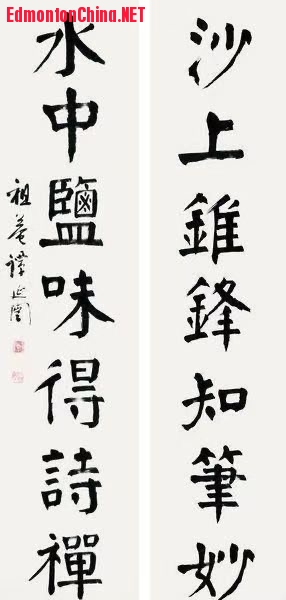 EdmontonChina.NET
沙上錐鋒知筆妙
水中鹽味得詩禪
祖菴譚延闓